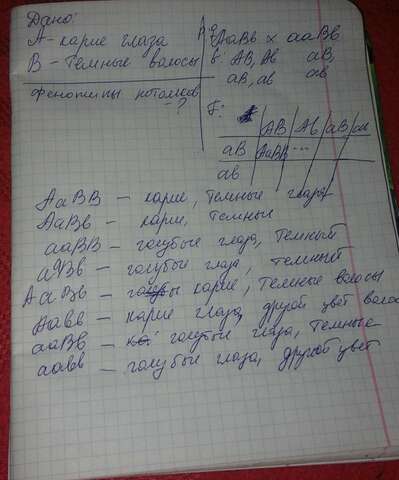 Дано:
А - карие глаза
В - Темные волосы
Фенотипы потомков - ?
Р: АаВв × ааВв
АВ, Ав аВ,
аВ, ав ав
F:
АВ Ав аВ ав
аВ АаВВ ...
ав
АаВВ - карие, темные глаза
АаВв - карие, темные
ааВВ - голубые глаза, темный
аВв - голубые глаза, темный
АаВв - карие, темные волосы
Аавв - карие глаза, другой цвет волос
ааВв - голубые глаза, темные
аавв - голубые глаза, другой цвет